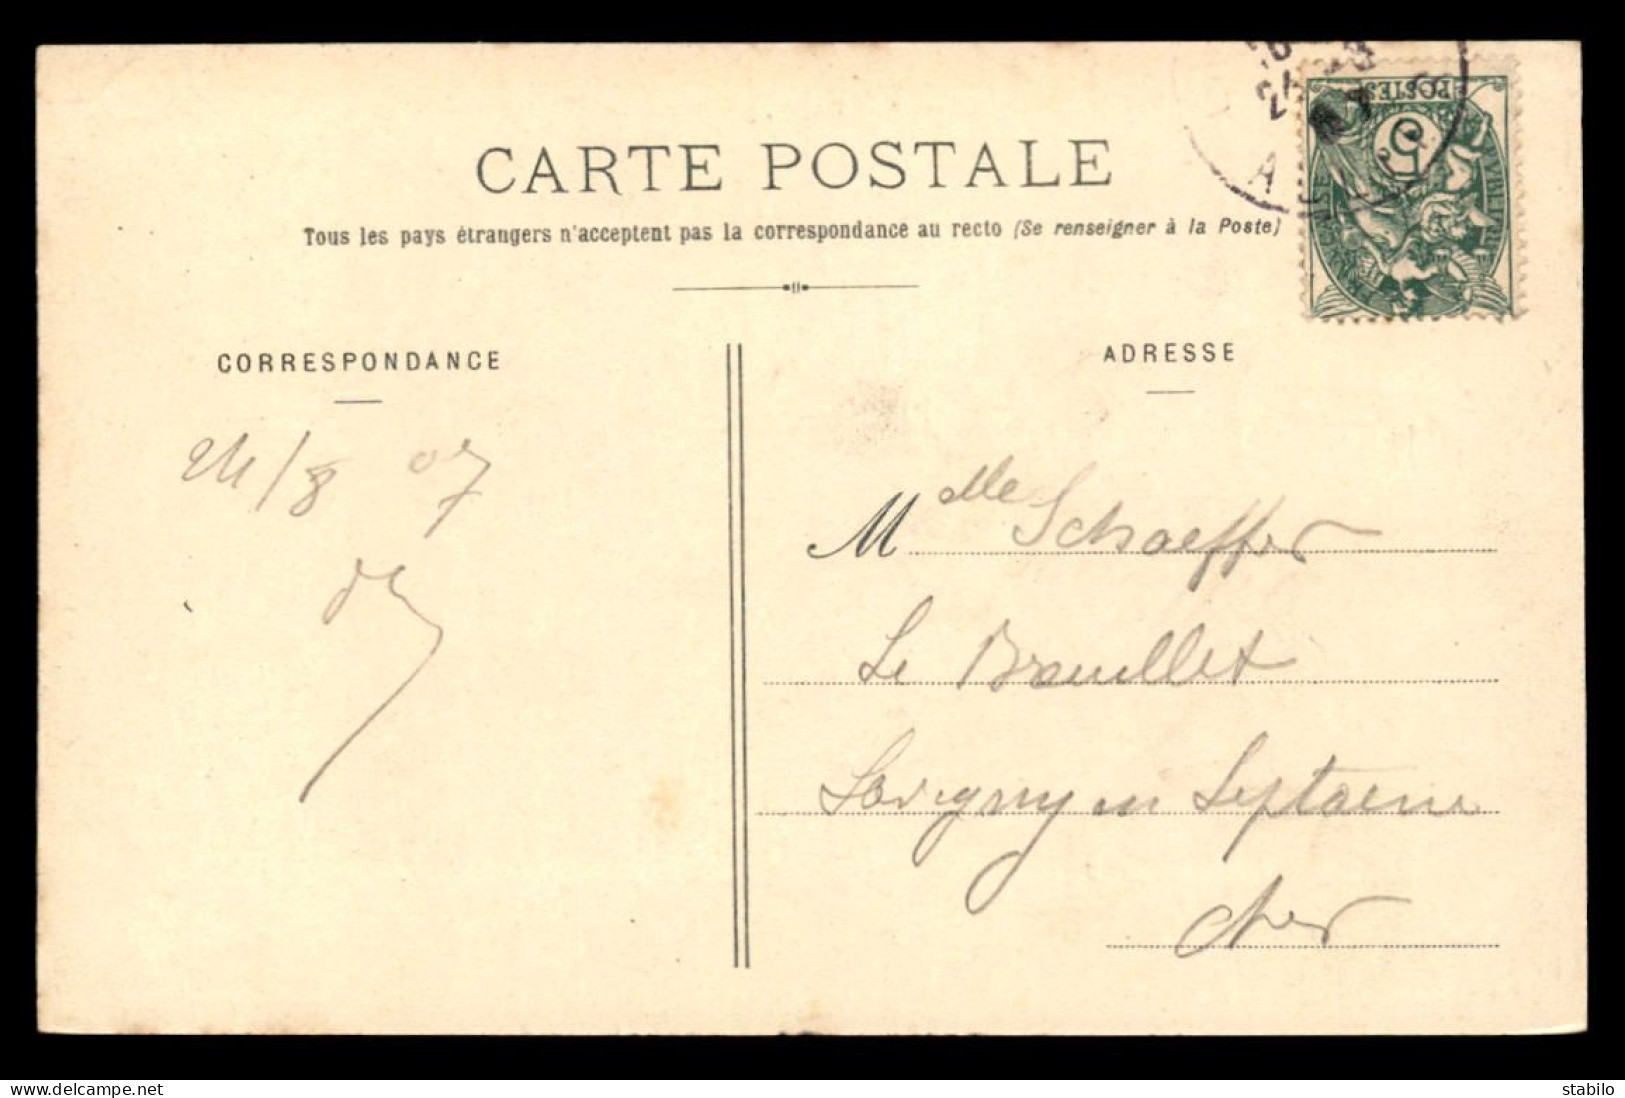 CARTE POSTALE
Tous les pays étrangers n'acceptent pas la correspondance au recto (Se renseigner à la Poste)
POSTES
5
CORRESPONDANCE
ADRESSE
24/8 07
Mlle Schaeffer
Le Breuillet
Savigny en Septaine
Cher
delcampe.net
stabilo